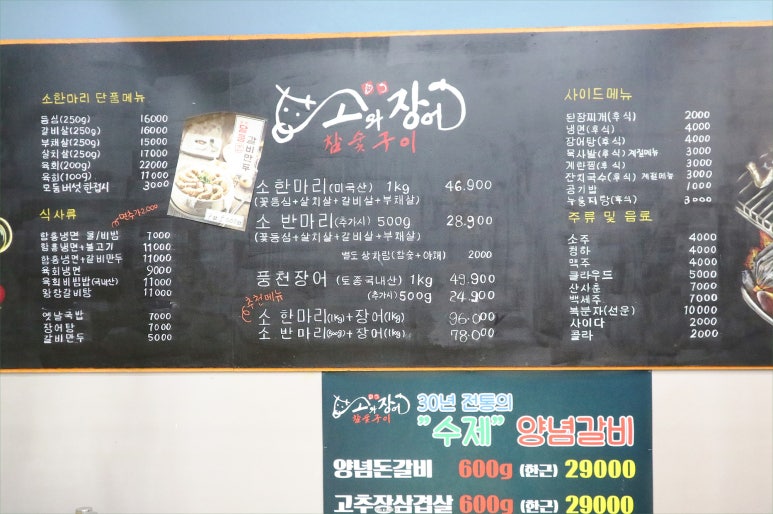 소한마리 단품메뉴
등심(250g) 16000
갈비살(250g) 16000
부채살(250g) 15000
살치살(250g) 17000
육회(200g) 22000
육회(100g) 11000
모듬버섯 한접시 3000
식사류 면추가2000
함흥냉면 물/비빔 7000
함흥냉면+불고기 11000
함흥냉면+갈비만두 11000
육회냉면 9000
육회비빔밥(국내산) 11000
왕창갈비탕 11000
옛날국밥 7000
장어탕 7000
갈비만두 5000
갈비만두
소와장어
참숯구이
소한마리(미국산) 1kg 46.900
(꽃등심+살치살+갈비살+부채살)
소 반마리(추가시) 500g 28.900
(꽃등심+살치살+갈비살+부채살)
별도 상차림(참숯+야채) 2000
풍천장어 (토종국내산) 1kg 49.900
(추가시) 500g 24.900
추천메뉴
소 한마리(1kg)+장어(1kg) 96.000
소 반마리(500g)+장어(1kg) 78.000
사이드메뉴
된장찌개(후식) 2000
냉면(후식) 4000
장어탕(후식) 4000
묵사발(후식) 계절메뉴 3000
계란찜(후식) 3000
잔치국수(후식) 계절메뉴 3000
공기밥 1000
누룽지탕(후식) 3000
주류 및 음료
소주 4000
청하 4000
맥주 4000
클라우드 5000
산사춘 7000
백세주 7000
복분자(선운) 10000
사이다 2000
콜라 2000
소와장어
참숯구이
30년 전통의
"수제" 양념갈비
양념돈갈비 600g (현근) 29000
고추장삼겹살 600g (현근) 29000